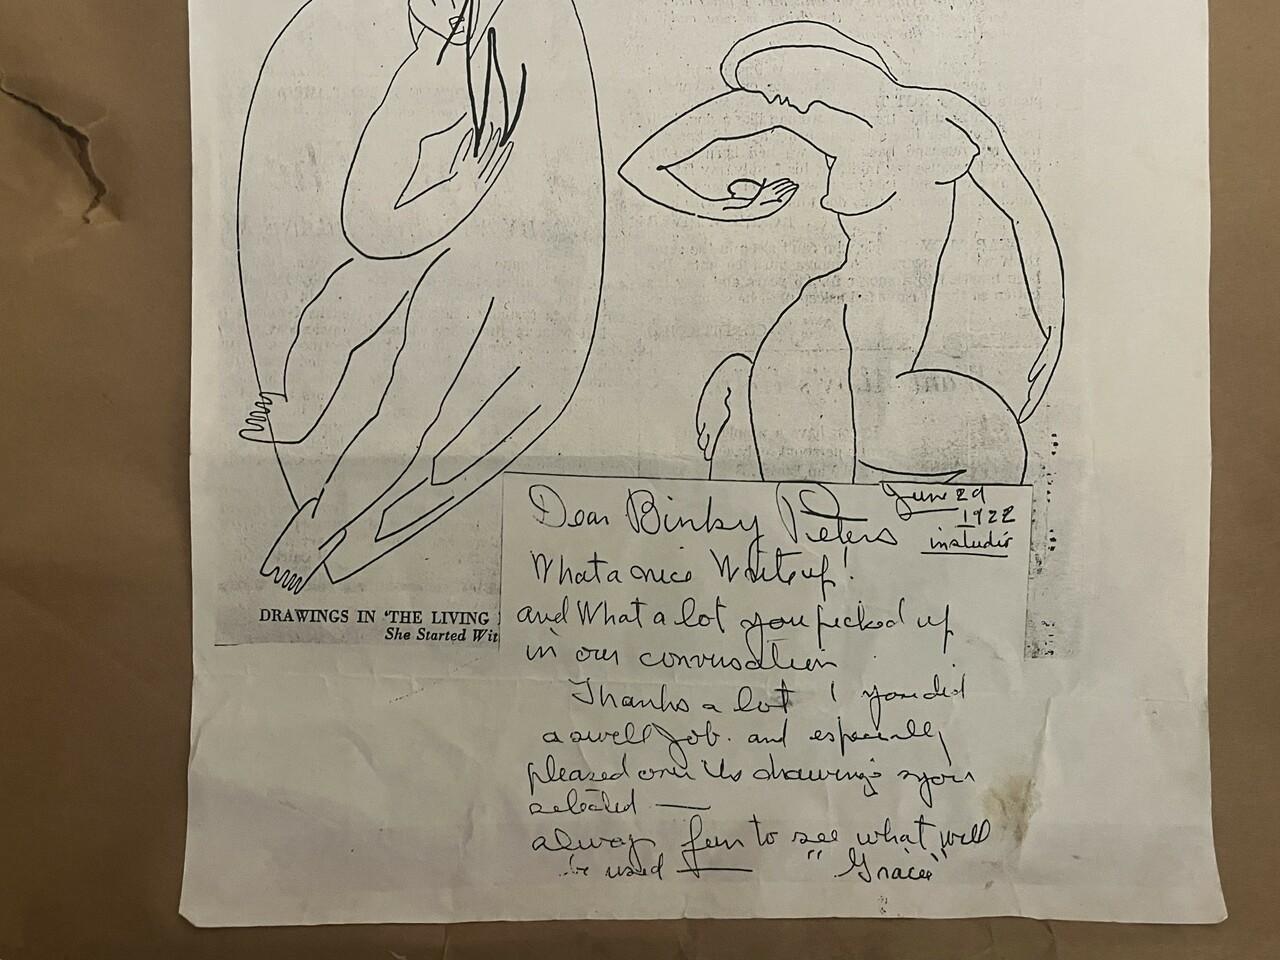 DRAWINGS IN 'THE LIVING
She Started Wit
June 29
1922
Dear Binky Peters
What a nice Write up!
and What a lot you picked up
in our conversation
Thanks a lot! you did
a swell Job. and especially
pleased over the drawings you
selected —
always fun to see what will
be used — "Gracie"